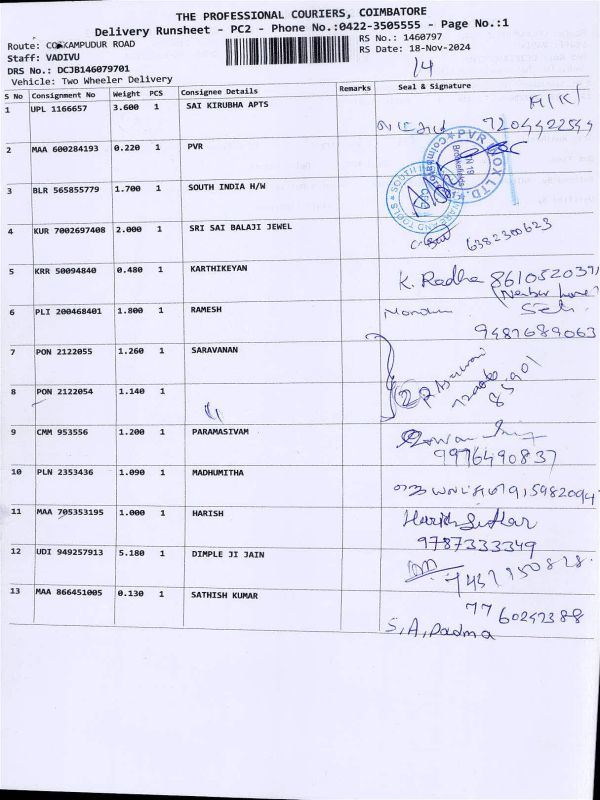 THE PROFESSIONAL COURIERS, COIMBATORE
Delivery Runsheet - PC2 - Phone No.:0422-3505555 - Page No.:1
Route: KAMPUDUR ROAD
RS No.: 1460797
Staff: VADIVU
RS Date: 18-Nov-2024
DRS No.: DCJB146079701
Vehicle: Two Wheeler Delivery
14
S No Consignment No Weight PCS Consignee Details Remarks Seal & Signature
1 UPL 1166657 3.600 1 SAI KIRUBHA APTS
7204422544
2 MAA 600284193 0.220 1 PVR
3 BLR 565855779 1.700 1 SOUTH INDIA H/W
4 KUR 7002697408 2.000 1 SRI SAI BALAJI JEWEL
6382300623
5 KRR 50094840 0.480 1 KARTHIKEYAN K. Radha
6 PLI 200468401 1.800 1 RAMESH
9487689063
7 PON 2122055 1.260 1 SARAVANAN
8 PON 2122054 1.140 1
9 CMM 953556 1.200 1 PARAMASIVAM
9976490837
10 PLN 2353436 1.090 1 MADHUMITHA
11 MAA 705353195 1.000 1 HARISH
9787333349
12 UDI 949257913 5.180 1 DIMPLE JI JAIN
13 MAA 866451005 0.130 1 SATHISH KUMAR
7760242388
S.A. Padma